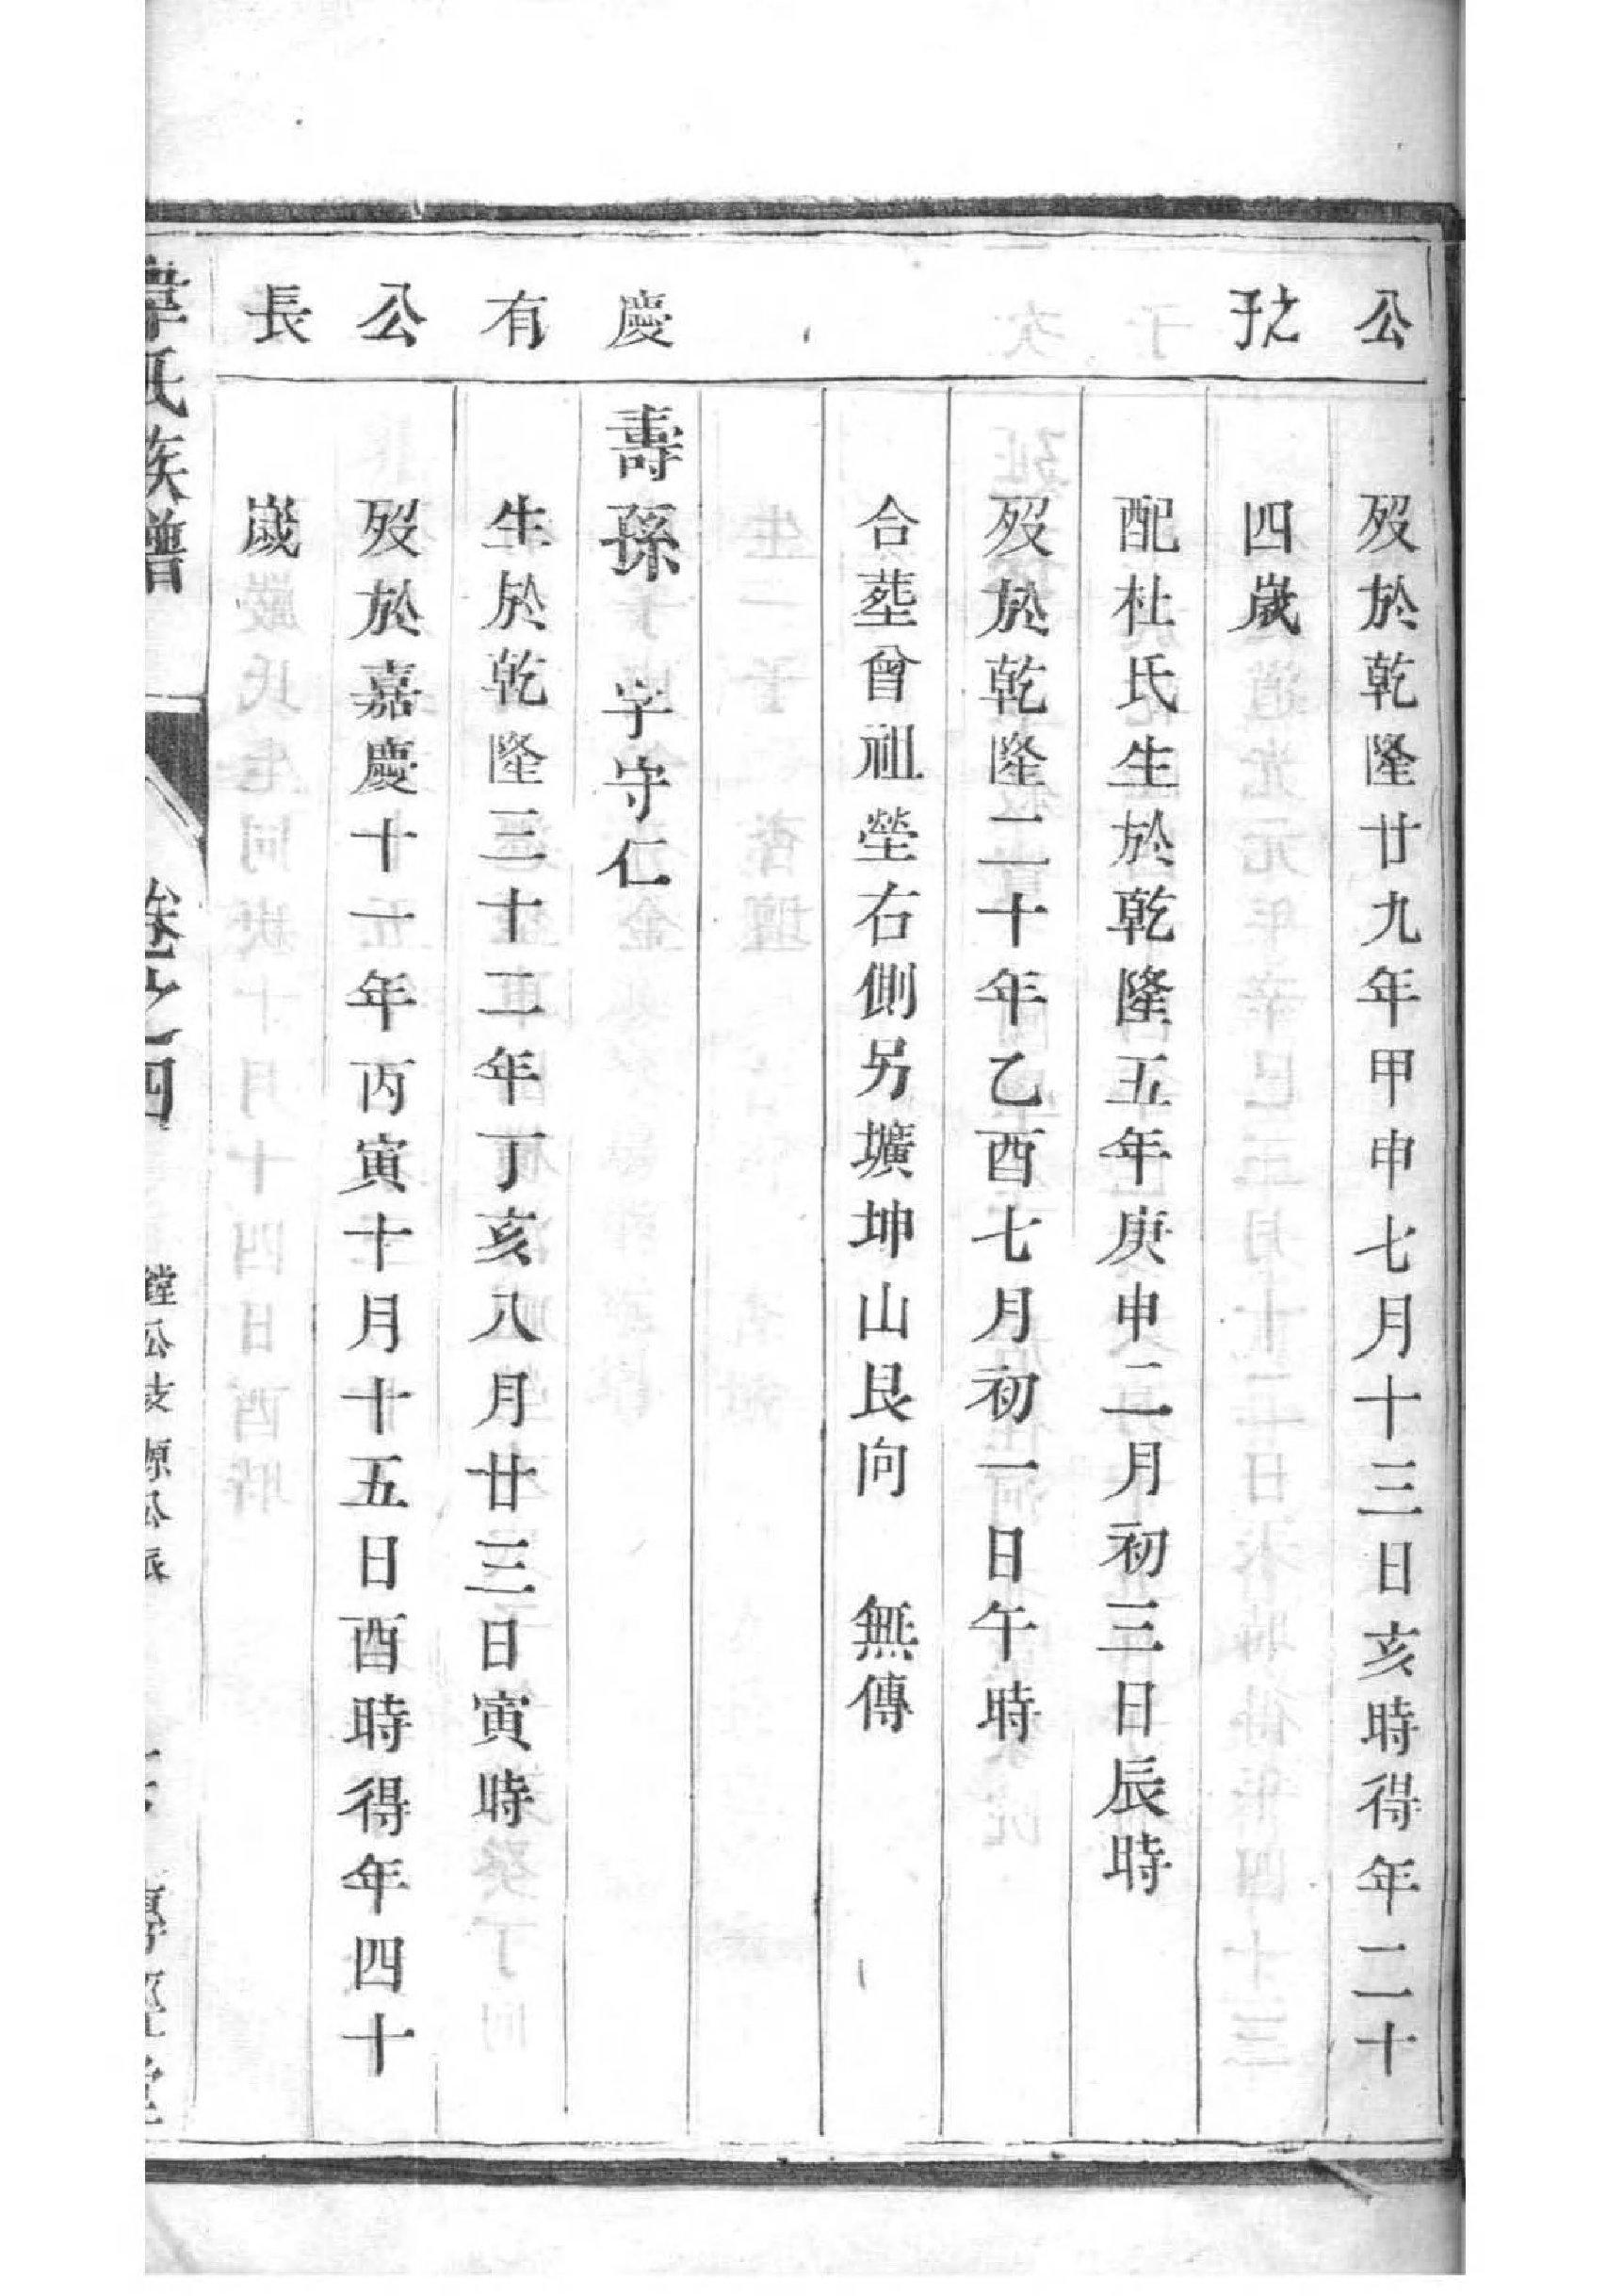 公
之子
歿於乾隆廿九年甲申七月十三日亥時得年二十
四歲
配杜氏生於乾隆五年庚申二月初三日辰時
歿於乾隆二十年乙酉七月初一日午時
合葬曾祖塋右側另壙坤山艮向 無傳
慶
有
公
長
壽孫 字守仁
生於乾隆三十二年丁亥八月廿三日寅時
歿於嘉慶十一年丙寅十月十五日酉時得年四十
歲
韋氏族譜
卷之四
鏜公支源公派